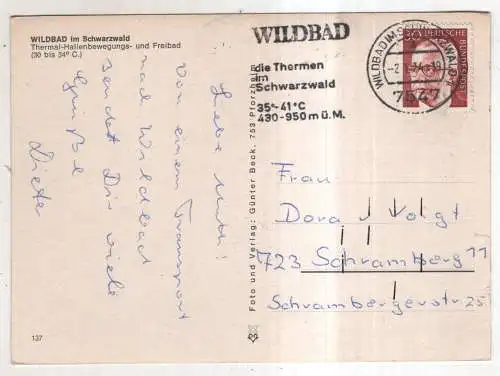 WILDBAD im Schwarzwald
Thermal-Hallenbewegungs- und Freibad
(30 bis 34° C.)
Liebe
Von einem Transport
nach Wildbad
sendet Dir viele
Grüße
Dieter
137
Foto und Verlag: Günter Beck, 753 Pforzheim
WILDBAD
die Thermen
im
Schwarzwald
35°-41°C
430-950 m ü.M.
WILDBAD IM SCHWARZWALD
7547
DEUTSCHE BUNDESPOST
Frau
Dora Voigt
723 Schramberg 11
Schrambergerstr 25